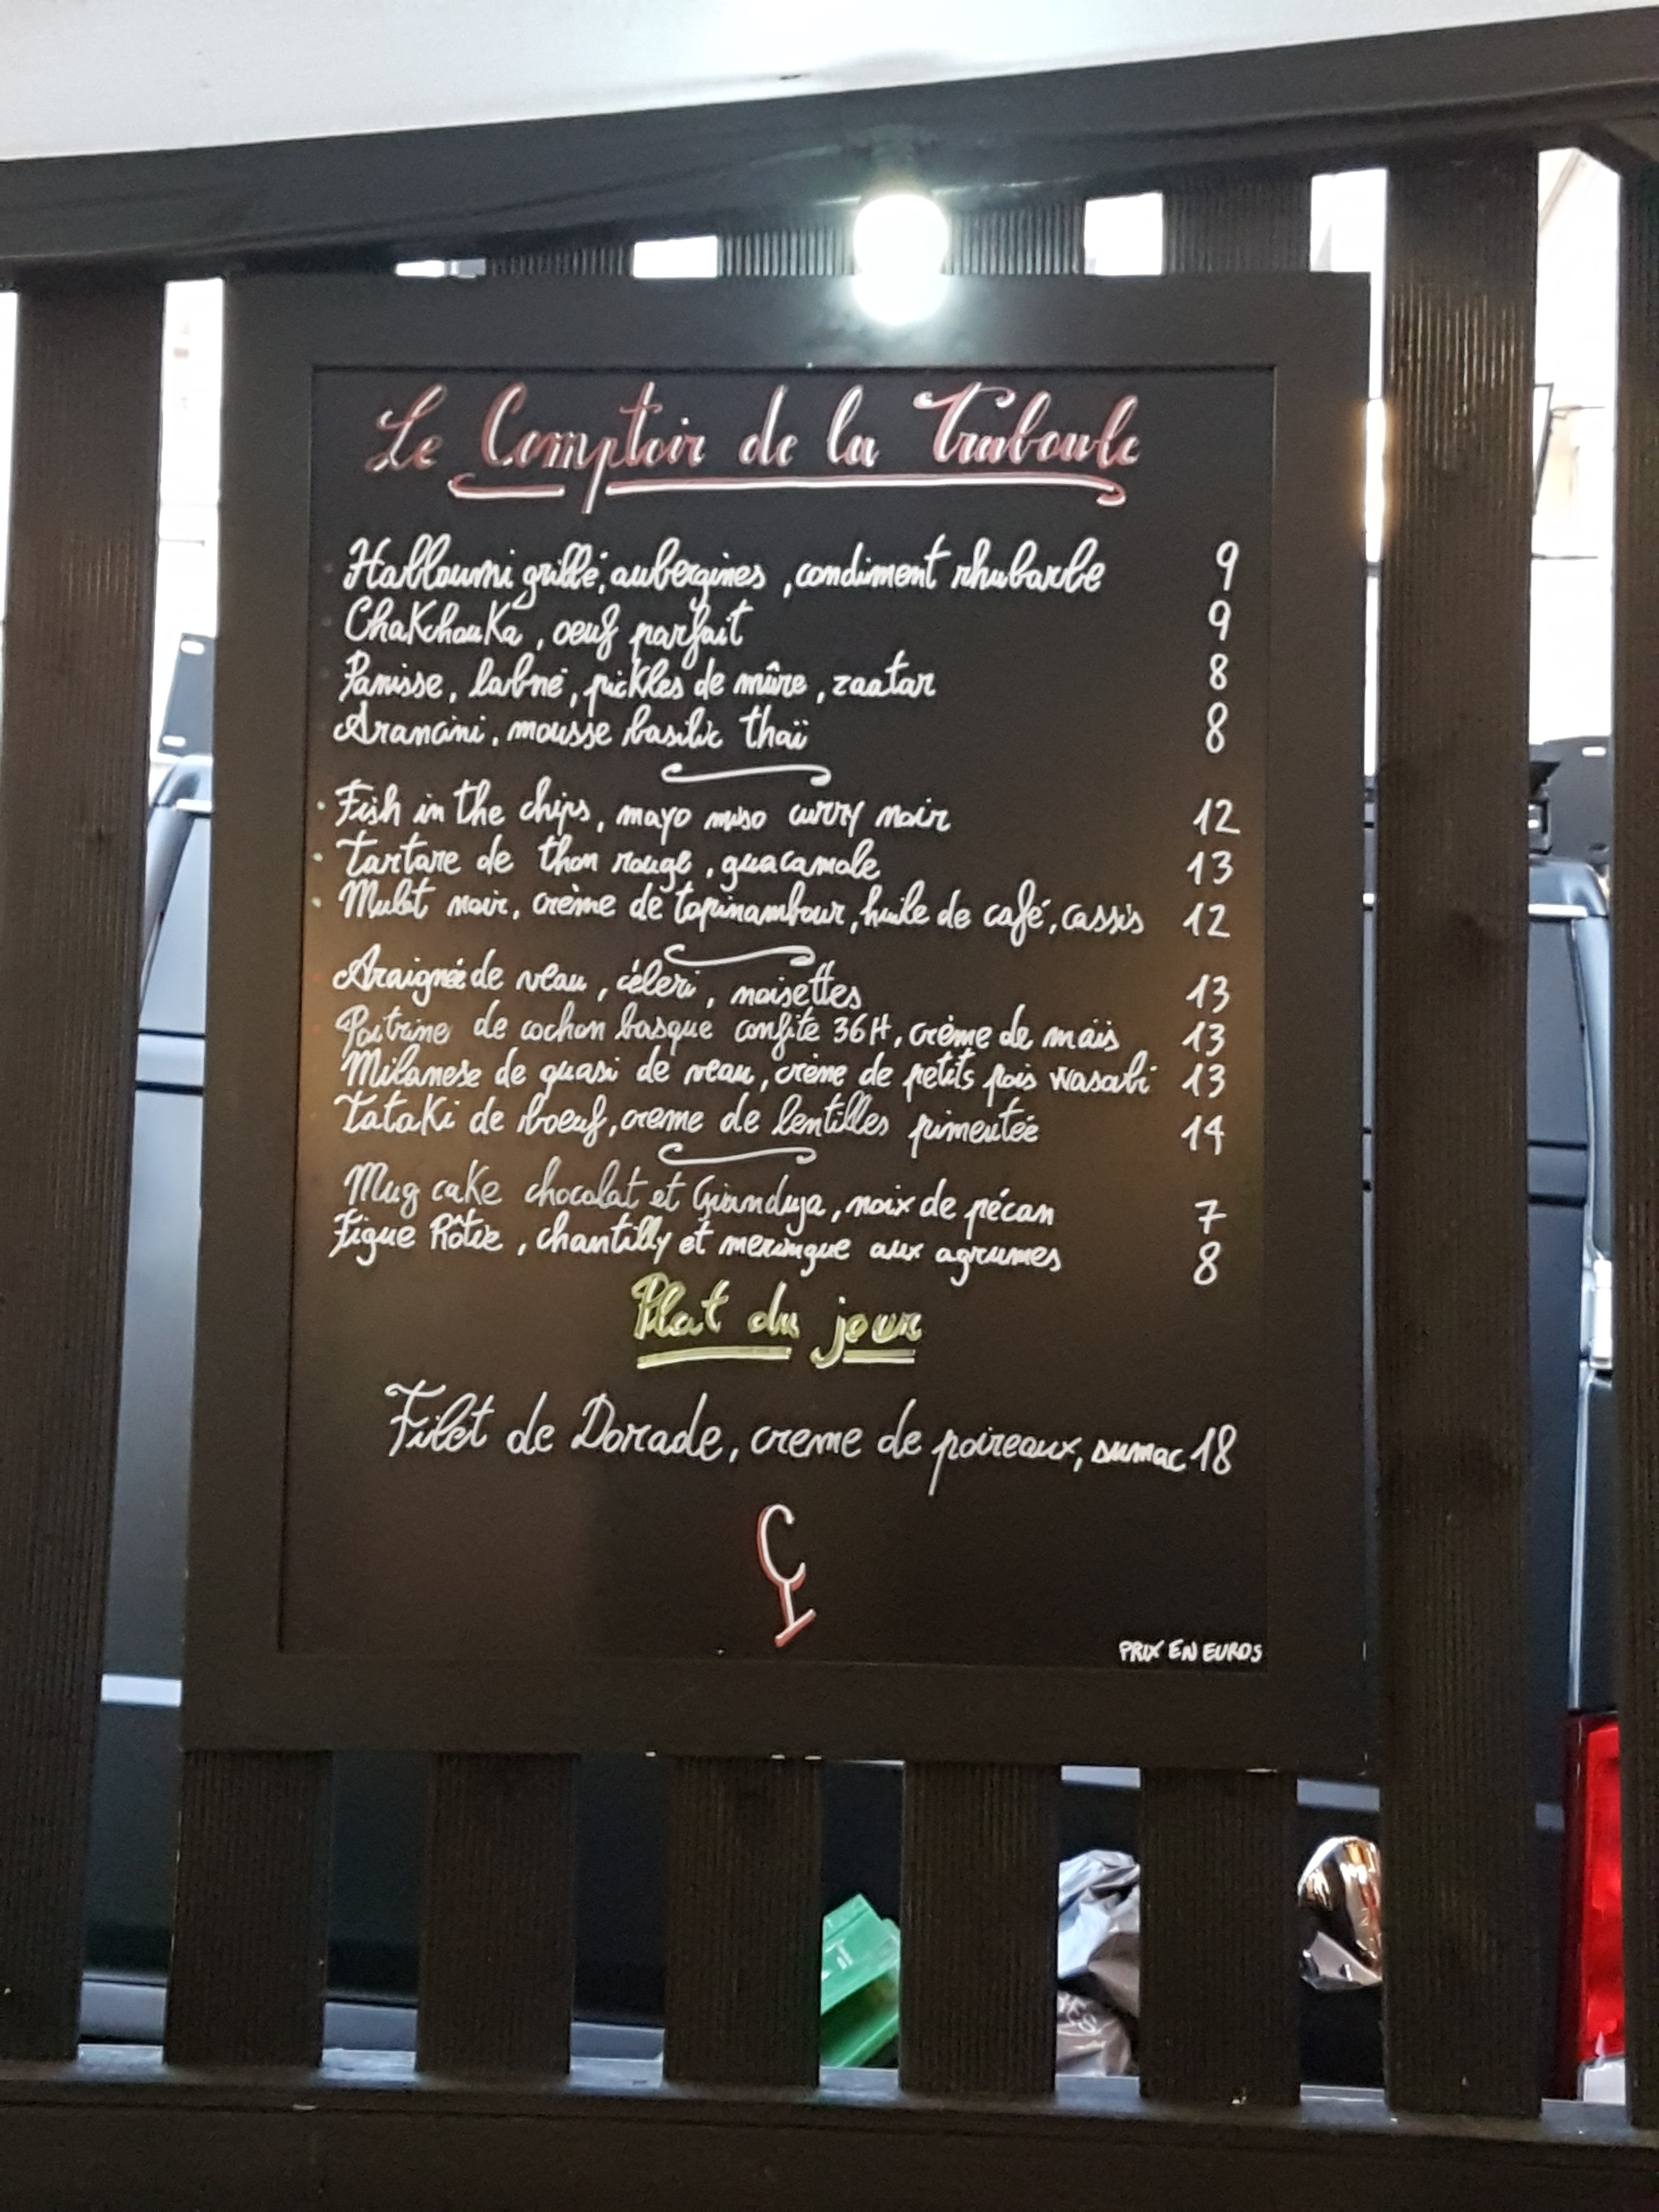 Le Comptoir de la Traboule
Halloumi grillé, aubergines, condiment rhubarbe 9
ChaKchouKa, oeuf parfait 9
Panisse, labné, pickles de mûre, zaatar 8
Arancini, mousse basilic thaï 8
Fish in the chips, mayo miso curry noir 12
Tartare de thon rouge, guacamole 13
Mulet noir, crème de topinambour, huile de café, cassis 12
Araignée de veau, céleri, noisettes 13
Poitrine de cochon basque confite 36H, crème de maïs 13
Milanese de quasi de veau, crème de petits pois wasabi 13
TataKi de boeuf, creme de lentilles pimentée 14
Mug caKe chocolat et Gianduja, noix de pécan 7
Figue Rôtie, chantilly et meringue aux agrumes 8
Plat du jour
Filet de Dorade, creme de poireaux, sumac 18
PRIX EN EUROS